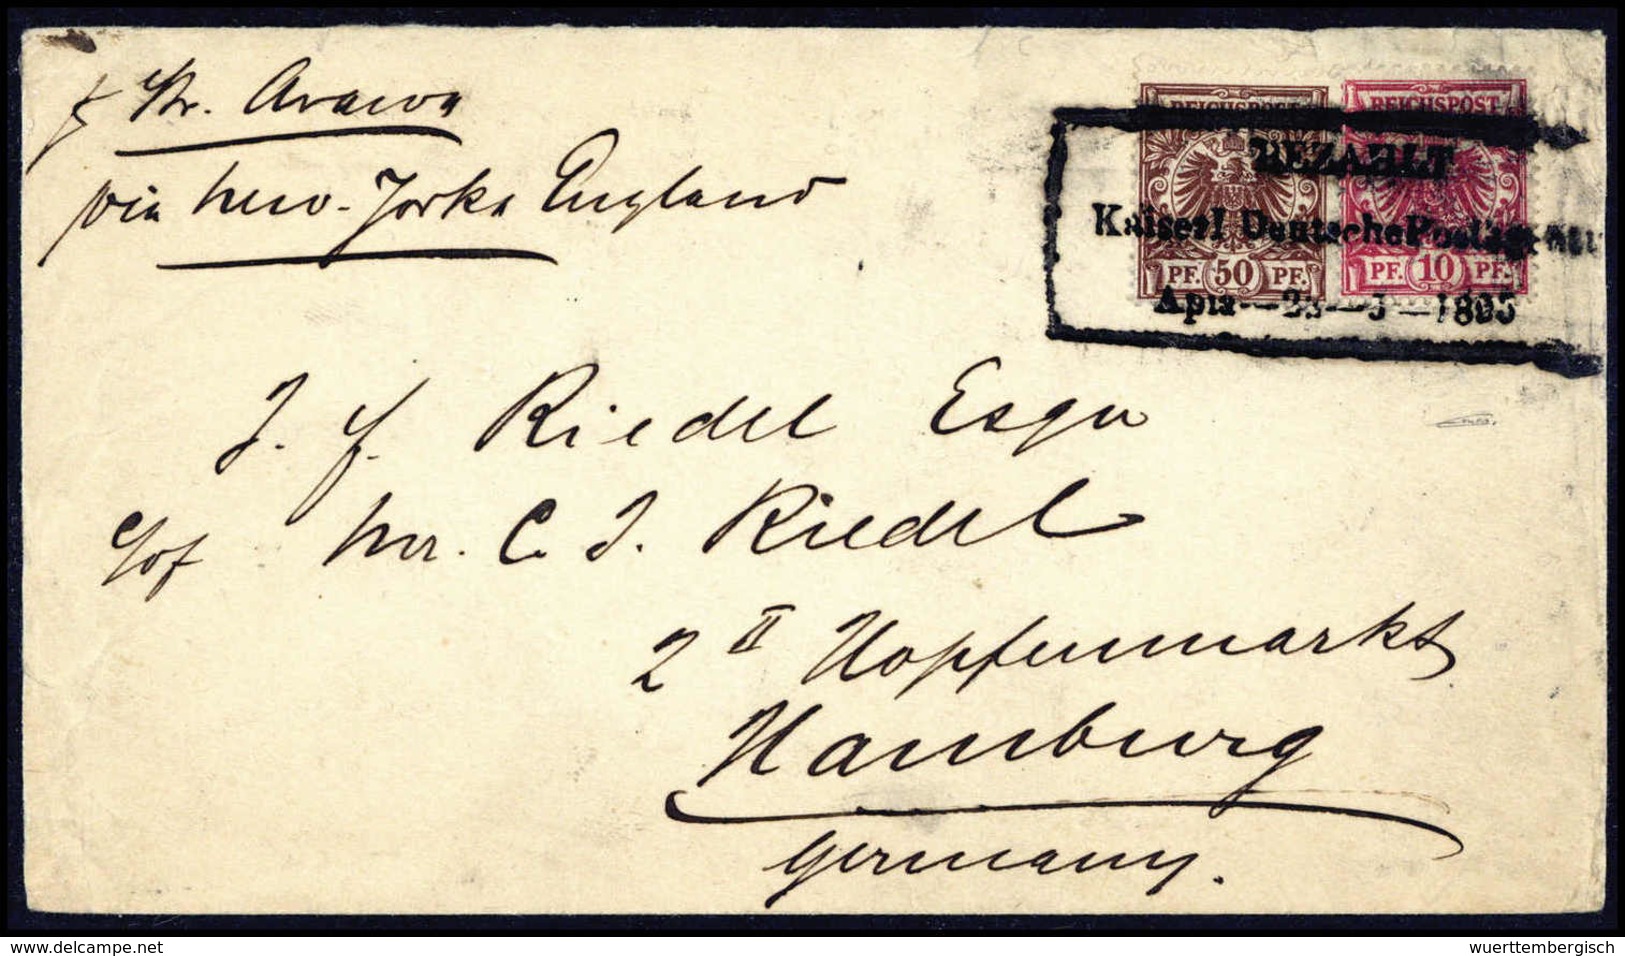 p Str. Arawa
via New-York & England
REICHSPOST
REICHSPOST
BEZAHLT
Kaiserl Deutsche Postagentur
PF. 50 PF.
PF. 10 PF.
Apia--23--5--1895
J. F. Riedel Esqu
c/of Mr. C. J. Riedel
2 II Hopfenmarkt
Hamburg
Germany.
www.delcampe.net
wuerttembergisch